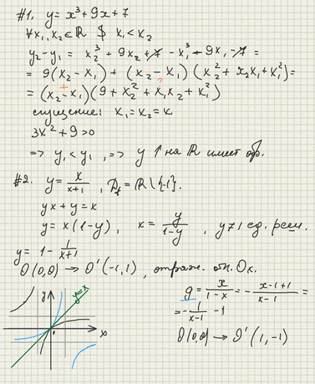 #1. y = x³ + 9x + 7
∀x₁,x₂ ∈ ℝ $ x₁ < x₂
y₂ - y₁ = x₂³ + 9x₂ + 7 - x₁³ - 9x₁ - 7 =
= 9(x₂ - x₁) + (x₂ - x₁)(x₂² + x₂x₁ + x₁²) =
+ ?
= (x₂ - x₁)(9 + x₂² + x₁x₂ + x₁²)
x₁ = x₂ = x
3x² + 9 > 0
=> y₁ < y₁, => y ↑ на ℝ имеет обр.
#2. y = x/(x+1), D_f = ℝ\{-1}.
yx + y = x
y = x(1-y), x = y/(1-y), y ≠ 1 ед. реш.
y = 1 - 1/(x+1)
O(0,0) → O'(-1,1), отраж. отн. Ox.
g = x/(1-x) = - (x-1+1)/(x-1) =
= - 1/(x-1) - 1
O(0,0) → O'(1,-1)
y
y=x
x